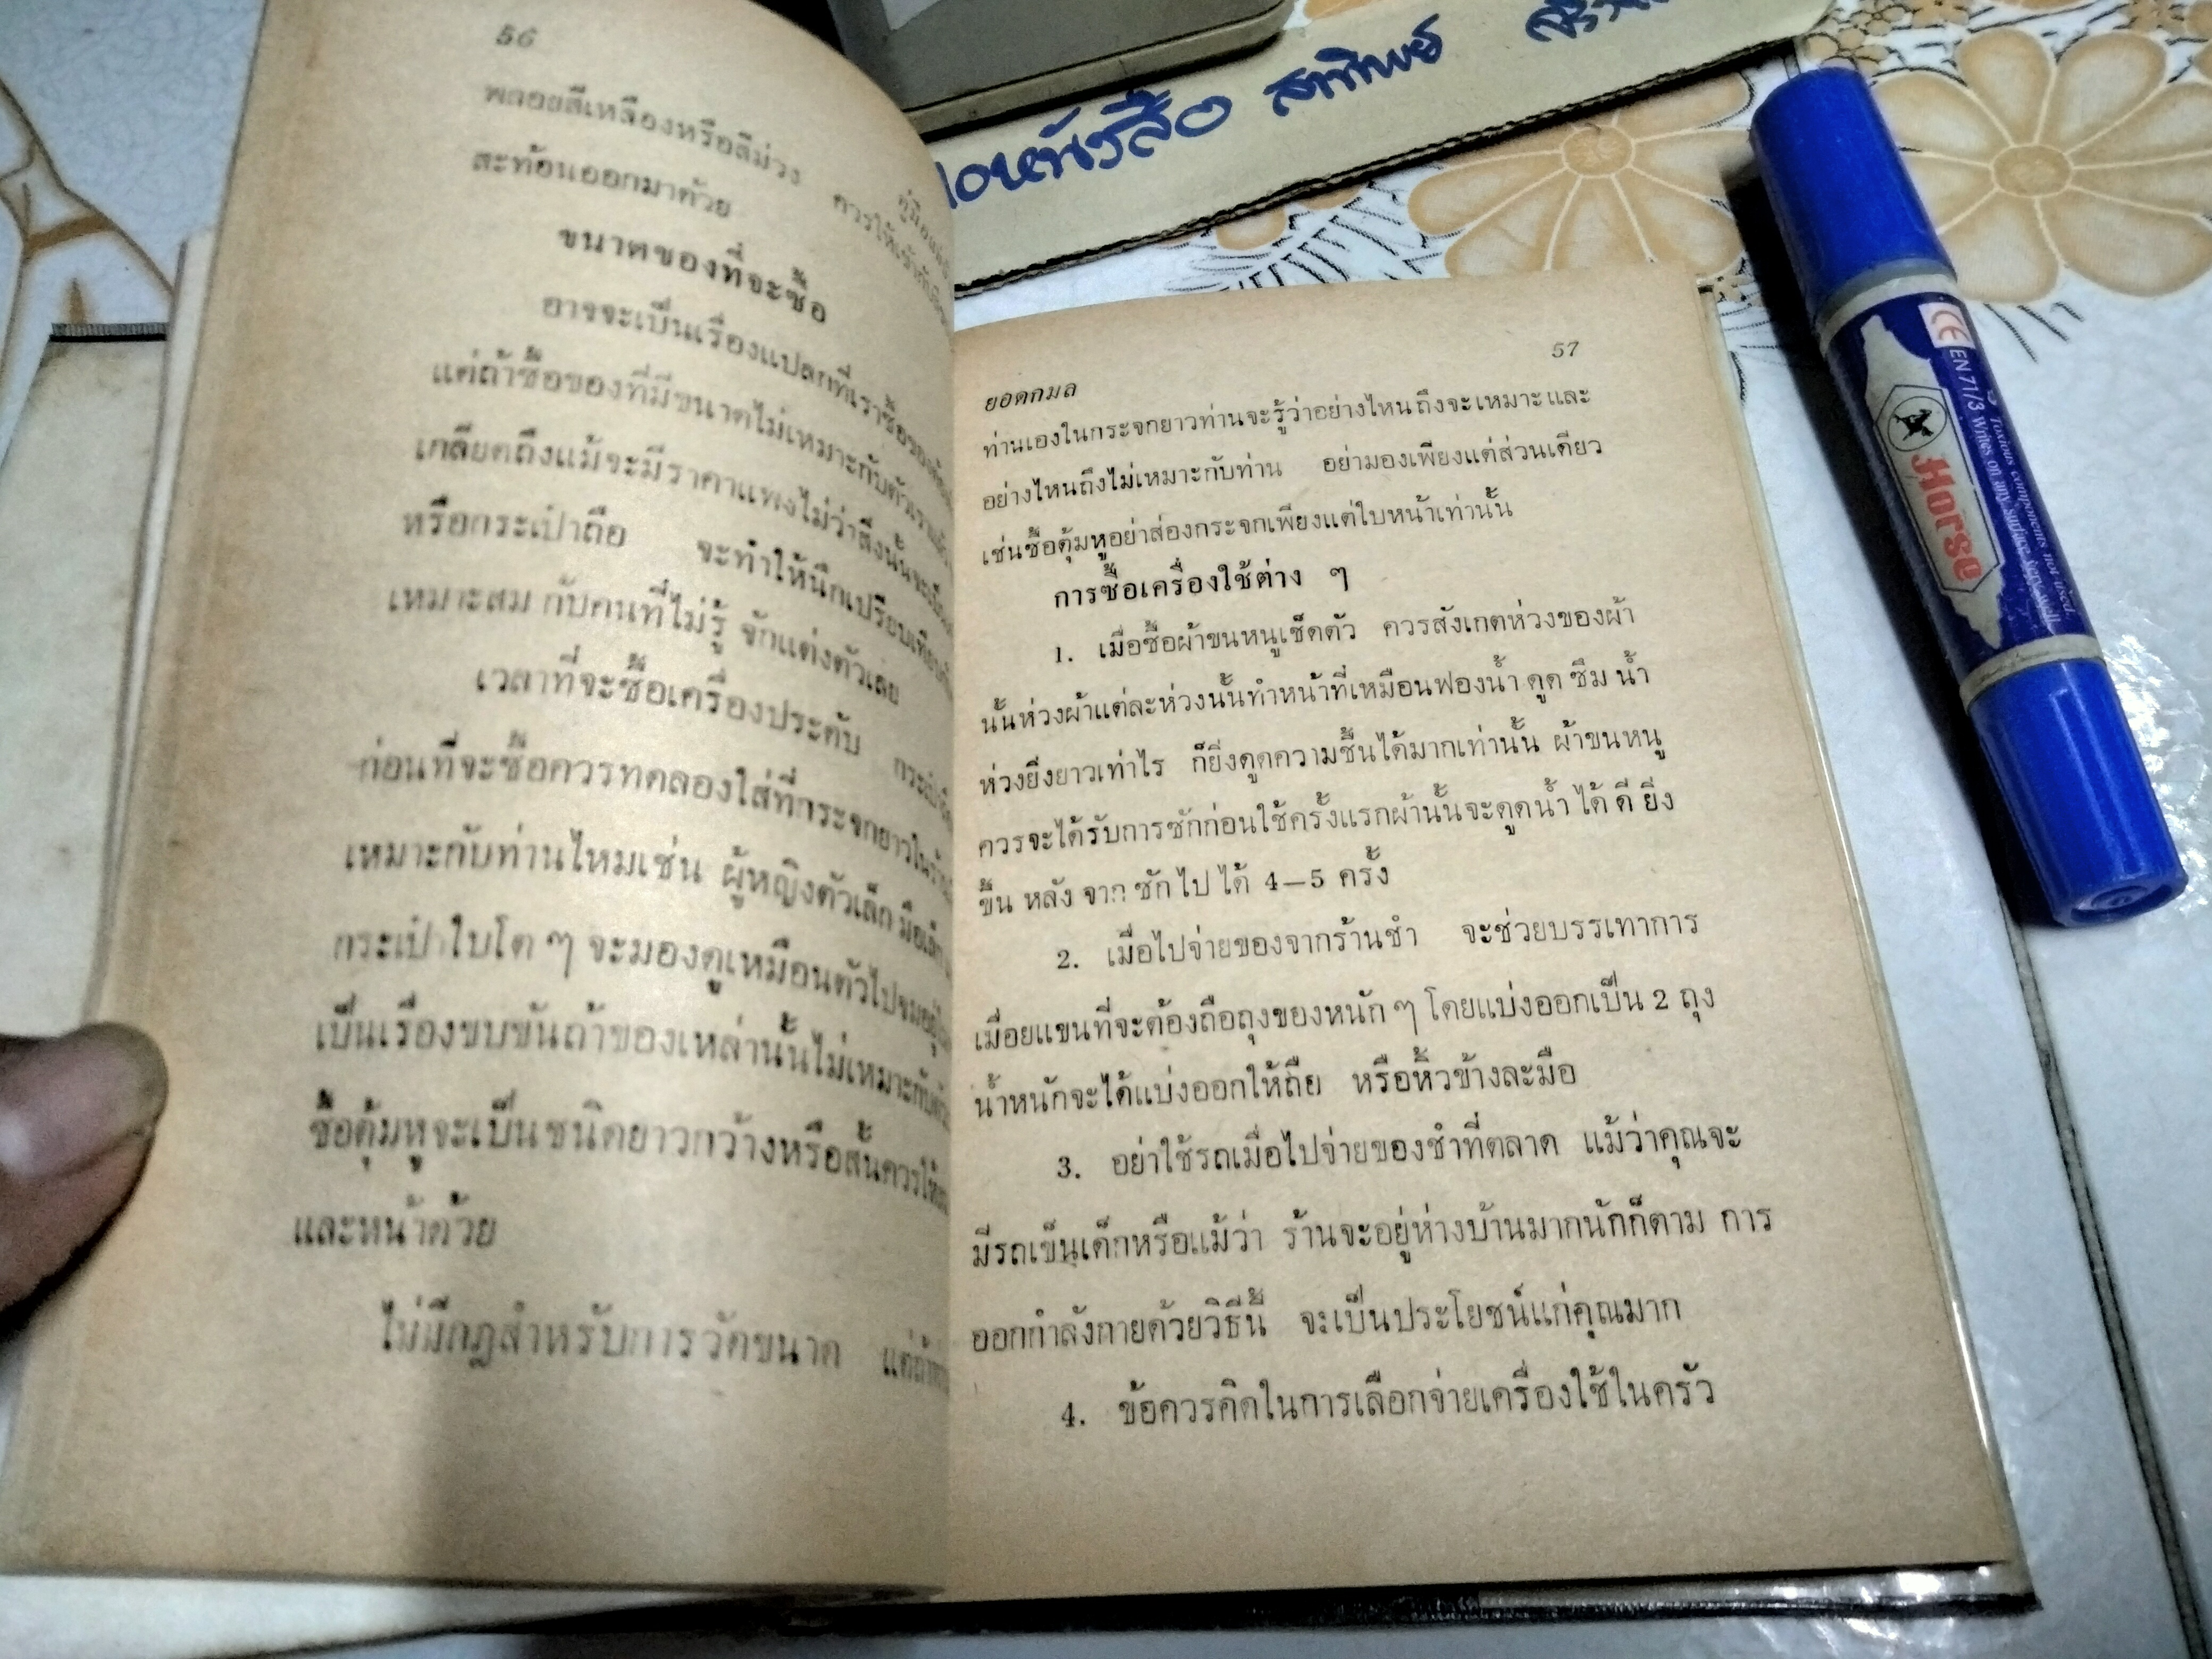 56
พลอยสีเหลืองหรือสีม่วง ควรให้
สะท้อนออกมาด้วย
ขนาดของที่จะซื้อ
อาจจะเป็นเรื่องแปลกที่เราซื้อของ
แต่ถ้าซื้อของที่มีขนาดไม่เหมาะกับตัวเรา
เกลียดถึงแม้จะมีราคาแพงไม่ว่าสิ่งนั้นจะเป็น
หรือกระเป๋าถือ จะทำให้นึกเปรียบเทียบ
เหมาะสม กับคนที่ไม่รู้ จักแต่งตัวเลย
เวลาที่จะซื้อเครื่องประดับ
ก่อนที่จะซื้อควรทดลองใส่ที่กระจกยาวใน
เหมาะกับท่านไหมเช่น ผู้หญิงตัวเล็ก มือเล็ก
กระเป๋าใบโต ๆ จะมองดูเหมือนตัวไปจม
เป็นเรื่องขบขันถ้าของเหล่านั้นไม่เหมาะกับ
ซื้อตุ้มหูจะเป็นชนิดยาวกว้างหรือสั้นควรให้
และหน้าด้วย
ไม่มีกฎสำหรับการวัดขนาด
ยอดกมล 57
ท่านเองในกระจกยาวท่านจะรู้ว่าอย่างไหนถึงจะเหมาะและ
อย่างไหนถึงไม่เหมาะกับท่าน อย่ามองเพียงแต่ส่วนเดียว
เช่นซื้อตุ้มหูอย่าส่องกระจกเพียงแต่ใบหน้าเท่านั้น
การซื้อเครื่องใช้ต่าง ๆ
1. เมื่อซื้อผ้าขนหนูเช็ดตัว ควรสังเกตห่วงของผ้า
นั้นห่วงผ้าแต่ละห่วงนั้นทำหน้าที่เหมือนฟองน้ำ ดูด ซึม น้ำ
ห่วงยิ่งยาวเท่าไร ก็ยิ่งดูดความชื้นได้มากเท่านั้น ผ้าขนหนู
ควรจะได้รับการซักก่อนใช้ครั้งแรกผ้านั้นจะดูดน้ำ ได้ ดี ยิ่ง
ขึ้น หลัง จาก ซัก ไป ได้ 4–5 ครั้ง
2. เมื่อไปจ่ายของจากร้านชำ จะช่วยบรรเทาการ
เมื่อยแขนที่จะต้องถือถุงของหนัก ๆ โดยแบ่งออกเป็น 2 ถุง
น้ำหนักจะได้แบ่งออกให้ถือ หรือหิ้วข้างละมือ
3. อย่าใช้รถเมื่อไปจ่ายของชำที่ตลาด แม้ว่าคุณจะ
มีรถเข็นเด็กหรือแม้ว่า ร้านจะอยู่ห่างบ้านมากนักก็ตาม การ
ออกกำลังกายด้วยวิธีนี้ จะเป็นประโยชน์แก่คุณมาก
4. ข้อควรคิดในการเลือกจ่ายเครื่องใช้ในครัว
หนังสือ
Horse
CE EN 71/3 Writes on any surface